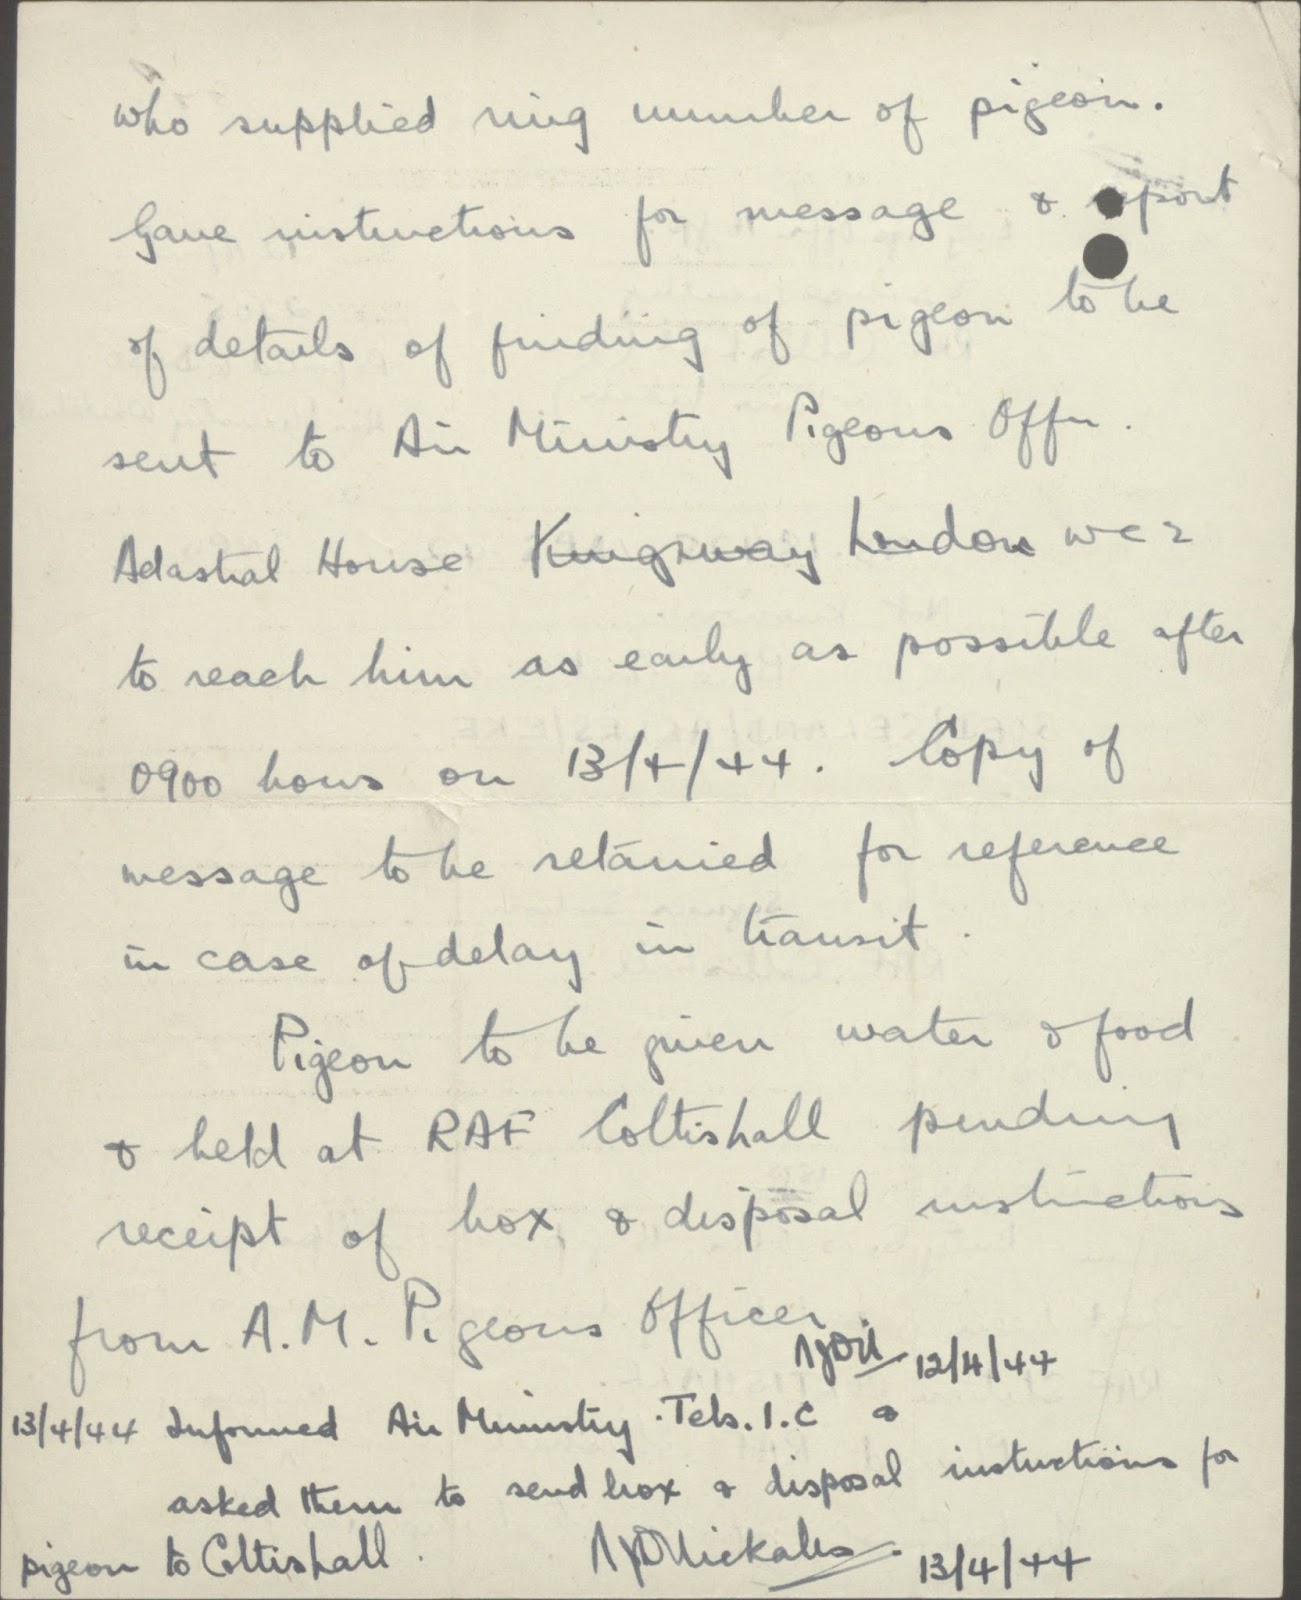 who supplied ring number of pigeon.
Gave instructions for message & report
of details of finding of pigeon to be
sent to Air Ministry Pigeons Offr.
Adastral House Kingsway London WC2
to reach him as early as possible after
0900 hours on 13/4/44. Copy of
message to be retained for reference
in case of delay in transit.
Pigeon to be given water & food
& held at RAF Coltishall pending
receipt of box & disposal instructions
from A.M. Pigeons Officer.
12/4/44
13/4/44 Informed Air Ministry Tels. 1.C &
asked them to send box & disposal instructions for
pigeon to Coltishall.
13/4/44